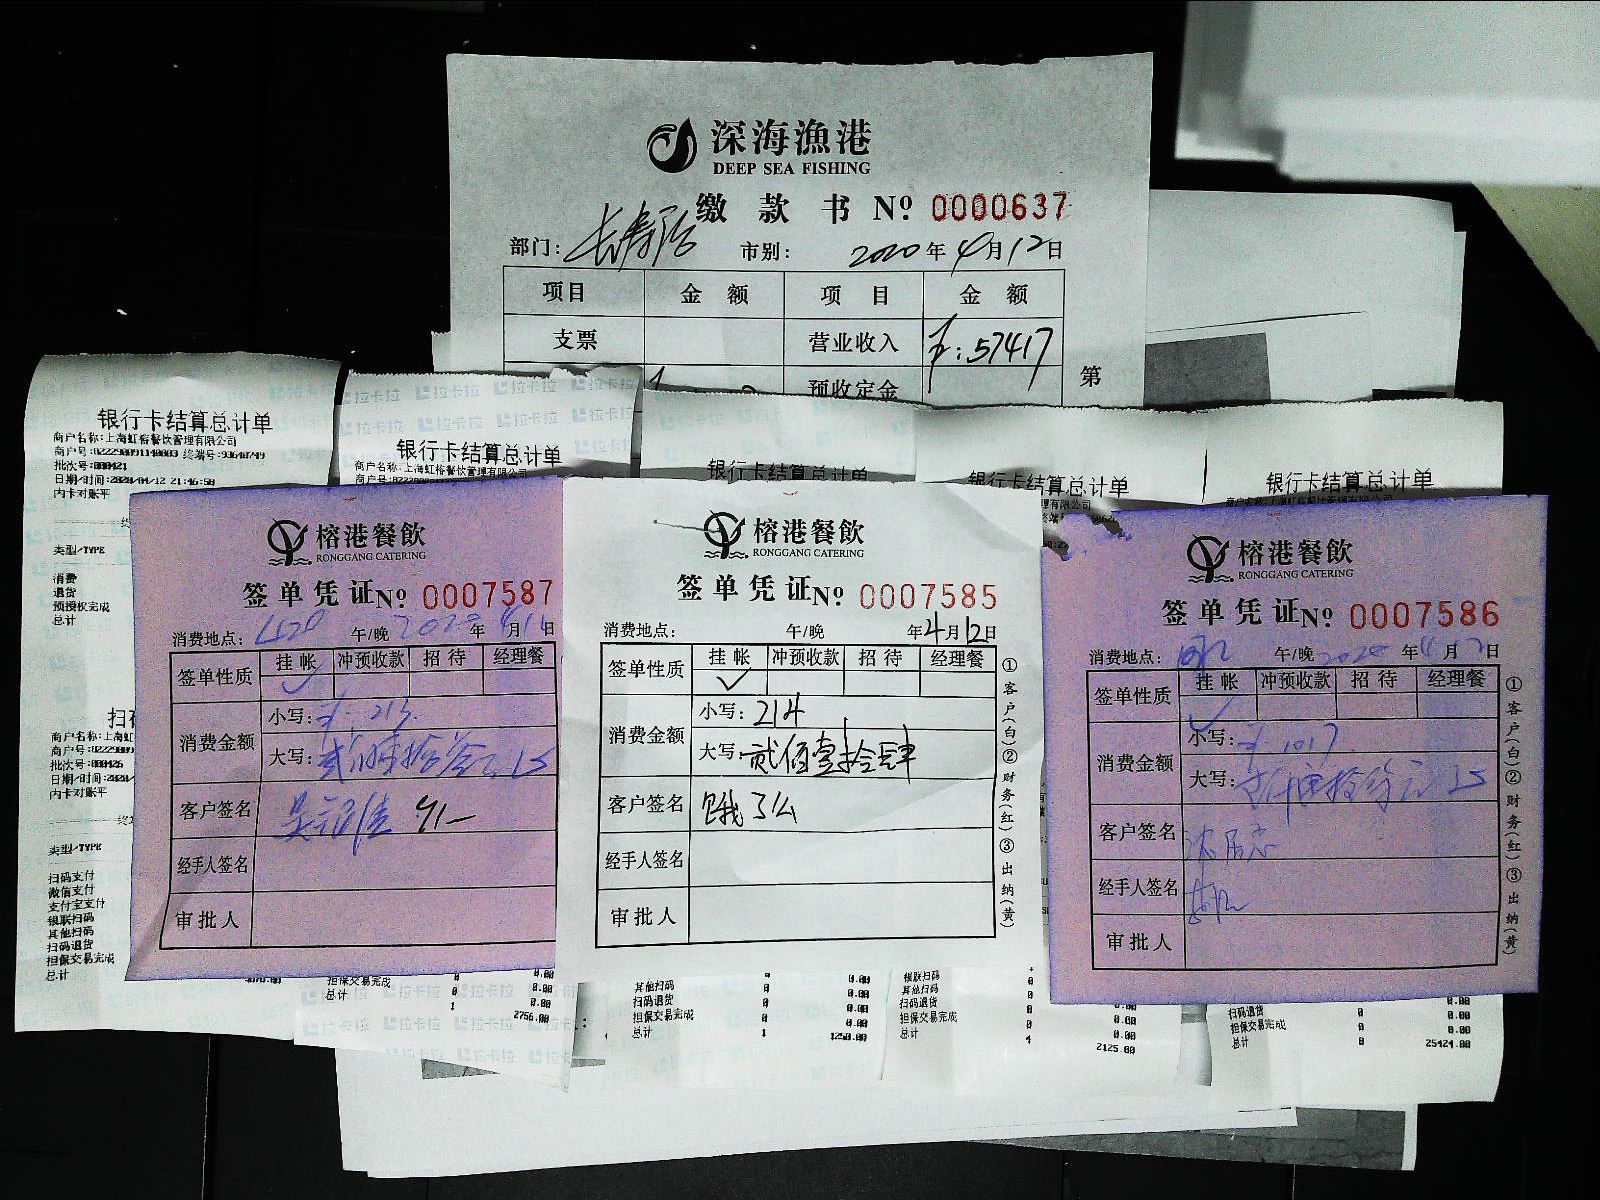 深海漁港
DEEP SEA FISHING
缴款书 Nº 0000637
部门: 市别: 2020年4月12日
项目 金额 项目 金额
支票 营业收入 ¥:57417
预收定金
第
银行卡结算总计单
商户名称:上海虹榕餐饮管理有限公司
商户号:82229809114D003 终端号:93640749
批次号:000421
日期/时间:2020/04/12 21:46:50
内卡对账平
类型/TYPE
消费
退货
预授权完成
总计
扫码
商户名称:上海虹
商户号:
批次号:000426
日期/时间:2020/
内卡对账平
类型/TYPE
扫码支付
微信支付
支付宝支付
银联扫码
其他扫码
扫码退货
担保交易完成
总计
拉卡拉 拉卡拉 拉卡拉 拉卡拉
银行卡结算总计单
商户名称:上海虹榕餐饮管理有限公司
银行卡结算总计单
银行卡结算总计单
银行卡结算总计单
榕港餐飲
RONGGANG CATERING
签单凭证Nº 0007587
消费地点: 午/晚 年 月 日
签单性质 挂帐 冲预收款 招待 经理餐
消费金额 小写:¥ 213.
大写:
客户签名
经手人签名
审批人
担保交易完成 0 0.00
总计 1 2756.00
榕港餐飲
RONGGANG CATERING
签单凭证Nº 0007585
消费地点: 午/晚 年4月12日
签单性质 挂帐 冲预收款 招待 经理餐
消费金额 小写:214
大写:贰佰壹拾肆
客户签名 饿了么
经手人签名
审批人
①客户(白)②财务(红)③出纳(黄)
其他扫码 0 0.00
扫码退货 0 0.00
担保交易完成 0 0.00
总计 1 1250.00
银联扫码
其他扫码 0
扫码退货 0 0.00
担保交易完成 0 0.00
总计 4 2125.00
榕港餐飲
RONGGANG CATERING
签单凭证Nº 0007586
消费地点: 午/晚 2020年4月12日
签单性质 挂帐 冲预收款 招待 经理餐
消费金额 小写:¥ 1017.
大写:
客户签名
经手人签名
审批人
①客户(白)②财务(红)③出纳(黄)
0.00
扫码退货 0 0.00
担保交易完成 0 0.00
总计 8 25424.00